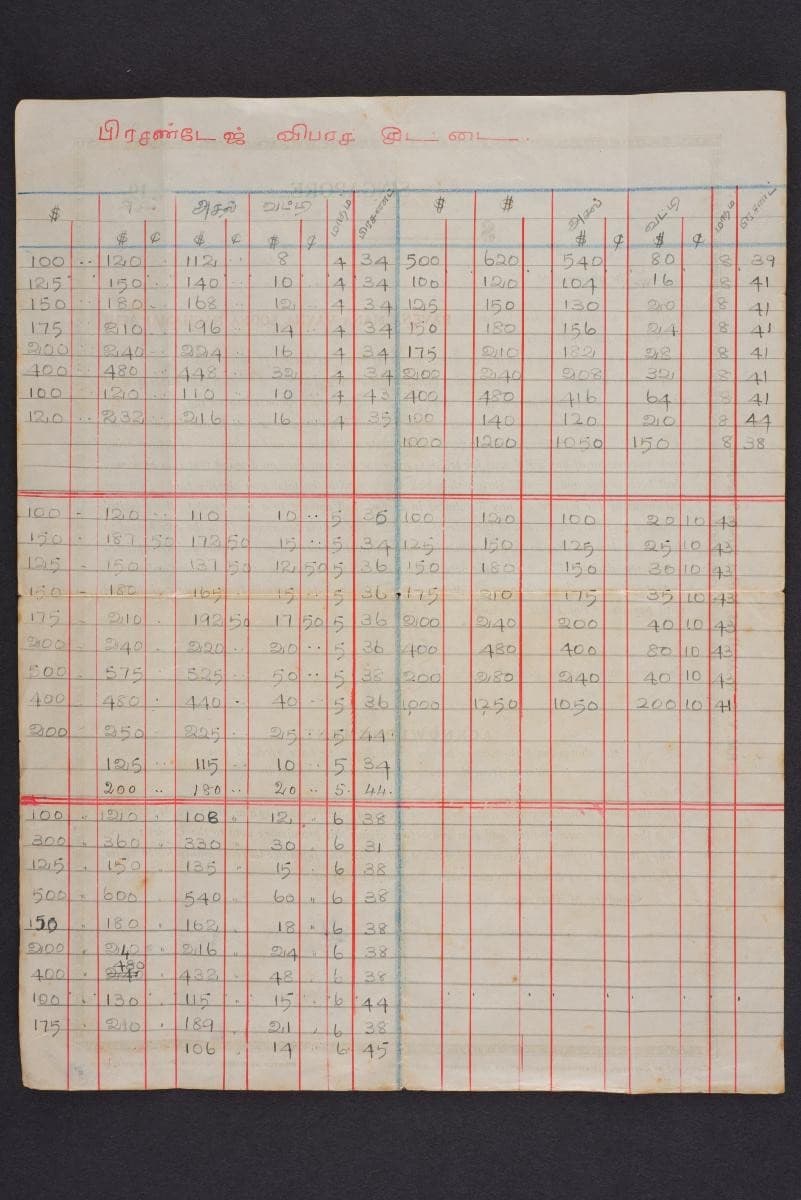 பிரசண்டேஜ் விபரச
$ அசல் வட்டி $ $ அசல் வட்டி
$ ¢ $ ¢ $ ¢ $ ¢ $ ¢
100 ·· 120 ·· 112 ·· 8 4 34 500 620 540 80 8 39
125 150 140 ·· 10 ·· 4 34 100 120 104 16 8 41
150 180 ·· 168 ·· 12 ·· 4 34 125 150 130 20 8 41
175 210 ·· 196 ·· 14 ·· 4 34 150 180 156 24 8 41
200 ·· 240 ·· 224 ·· 16 ·· 4 34 175 210 182 28 8 41
400 ·· 480 ·· 448 ·· 32 ·· 4 34 200 240 208 32 8 41
100 ·· 120 ·· 110 ·· 10 ·· 4 43 400 480 416 64 8 41
120 ·· 232 ·· 216 ·· 16 ·· 4 35 100 140 120 20 8 44
1000 1200 1050 150 8 38
100 - 120 ·· 110 10 ·· 5 36 100 120 100 20 10 43
150 - 187 50 172 50 15 ·· 5 34 125 150 125 25 10 43
125 - 150 137 50 12 50 5 36 150 180 150 30 10 43
150 - 180 165 15 ·· 5 36 175 210 175 35 10 43
175 - 210 ·· 192 50 17 50 5 36 200 240 200 40 10 43
200 - 240 ·· 220 ·· 20 ·· 5 36 400 480 400 80 10 43
500 - 575 525 50 ·· 5 38 200 280 240 40 10 43
400 480 · 440 · 40 ·· 5 36 1,000 1,250 1050 200 10 41
200 - 250 ·· 225 ·· 25 ·· 5 44
125 ·· 115 10 ·· 5 34
200 ·· 180 ·· 20 ·· 5 44
100 " 120 " 108 " 12 " 6 38
300 " 360 " 330 " 30 " 6 31
125 " 150 " 135 " 15 " 6 38
500 " 600 540 60 " 6 38
150 " 180 " 162 " 18 " 6 38
200 " 240 " 216 " 24 " 6 38
400 " 480 " 432 " 48 " 6 38
100 130 " 115 " 15 " 6 44
175 " 210 " 189 " 21 " 6 38
106 " 14 6 45